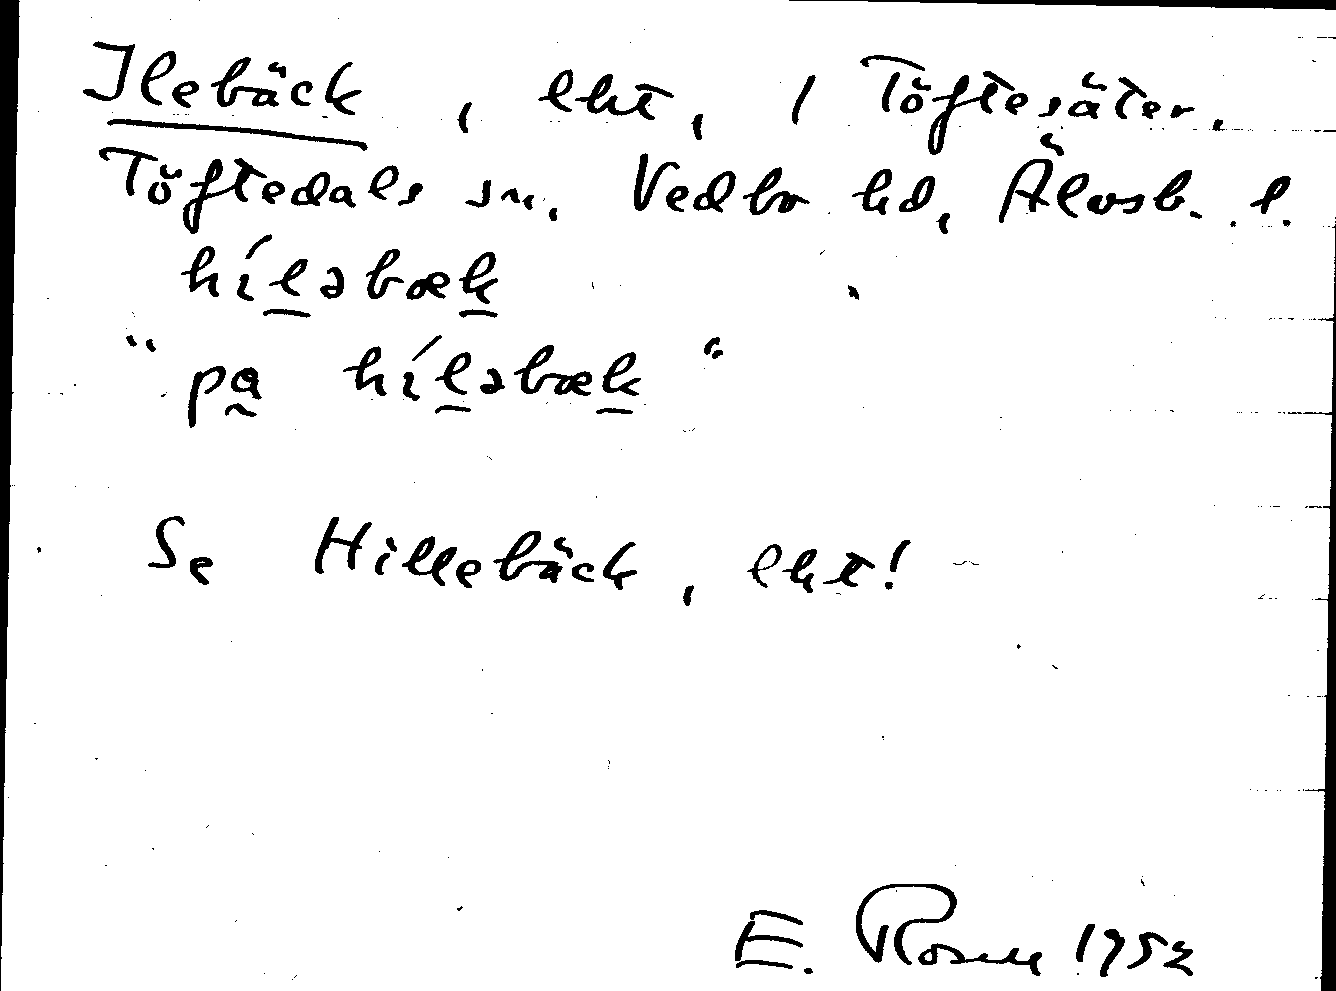 Ilebäck, lht, i Töftesäter.
Töftedals sn. Vedbo hd, Älvsb. l.
hílәbæk
"på hílәbæk"
Se Hillebäck, lht!
E. Rosell 1952